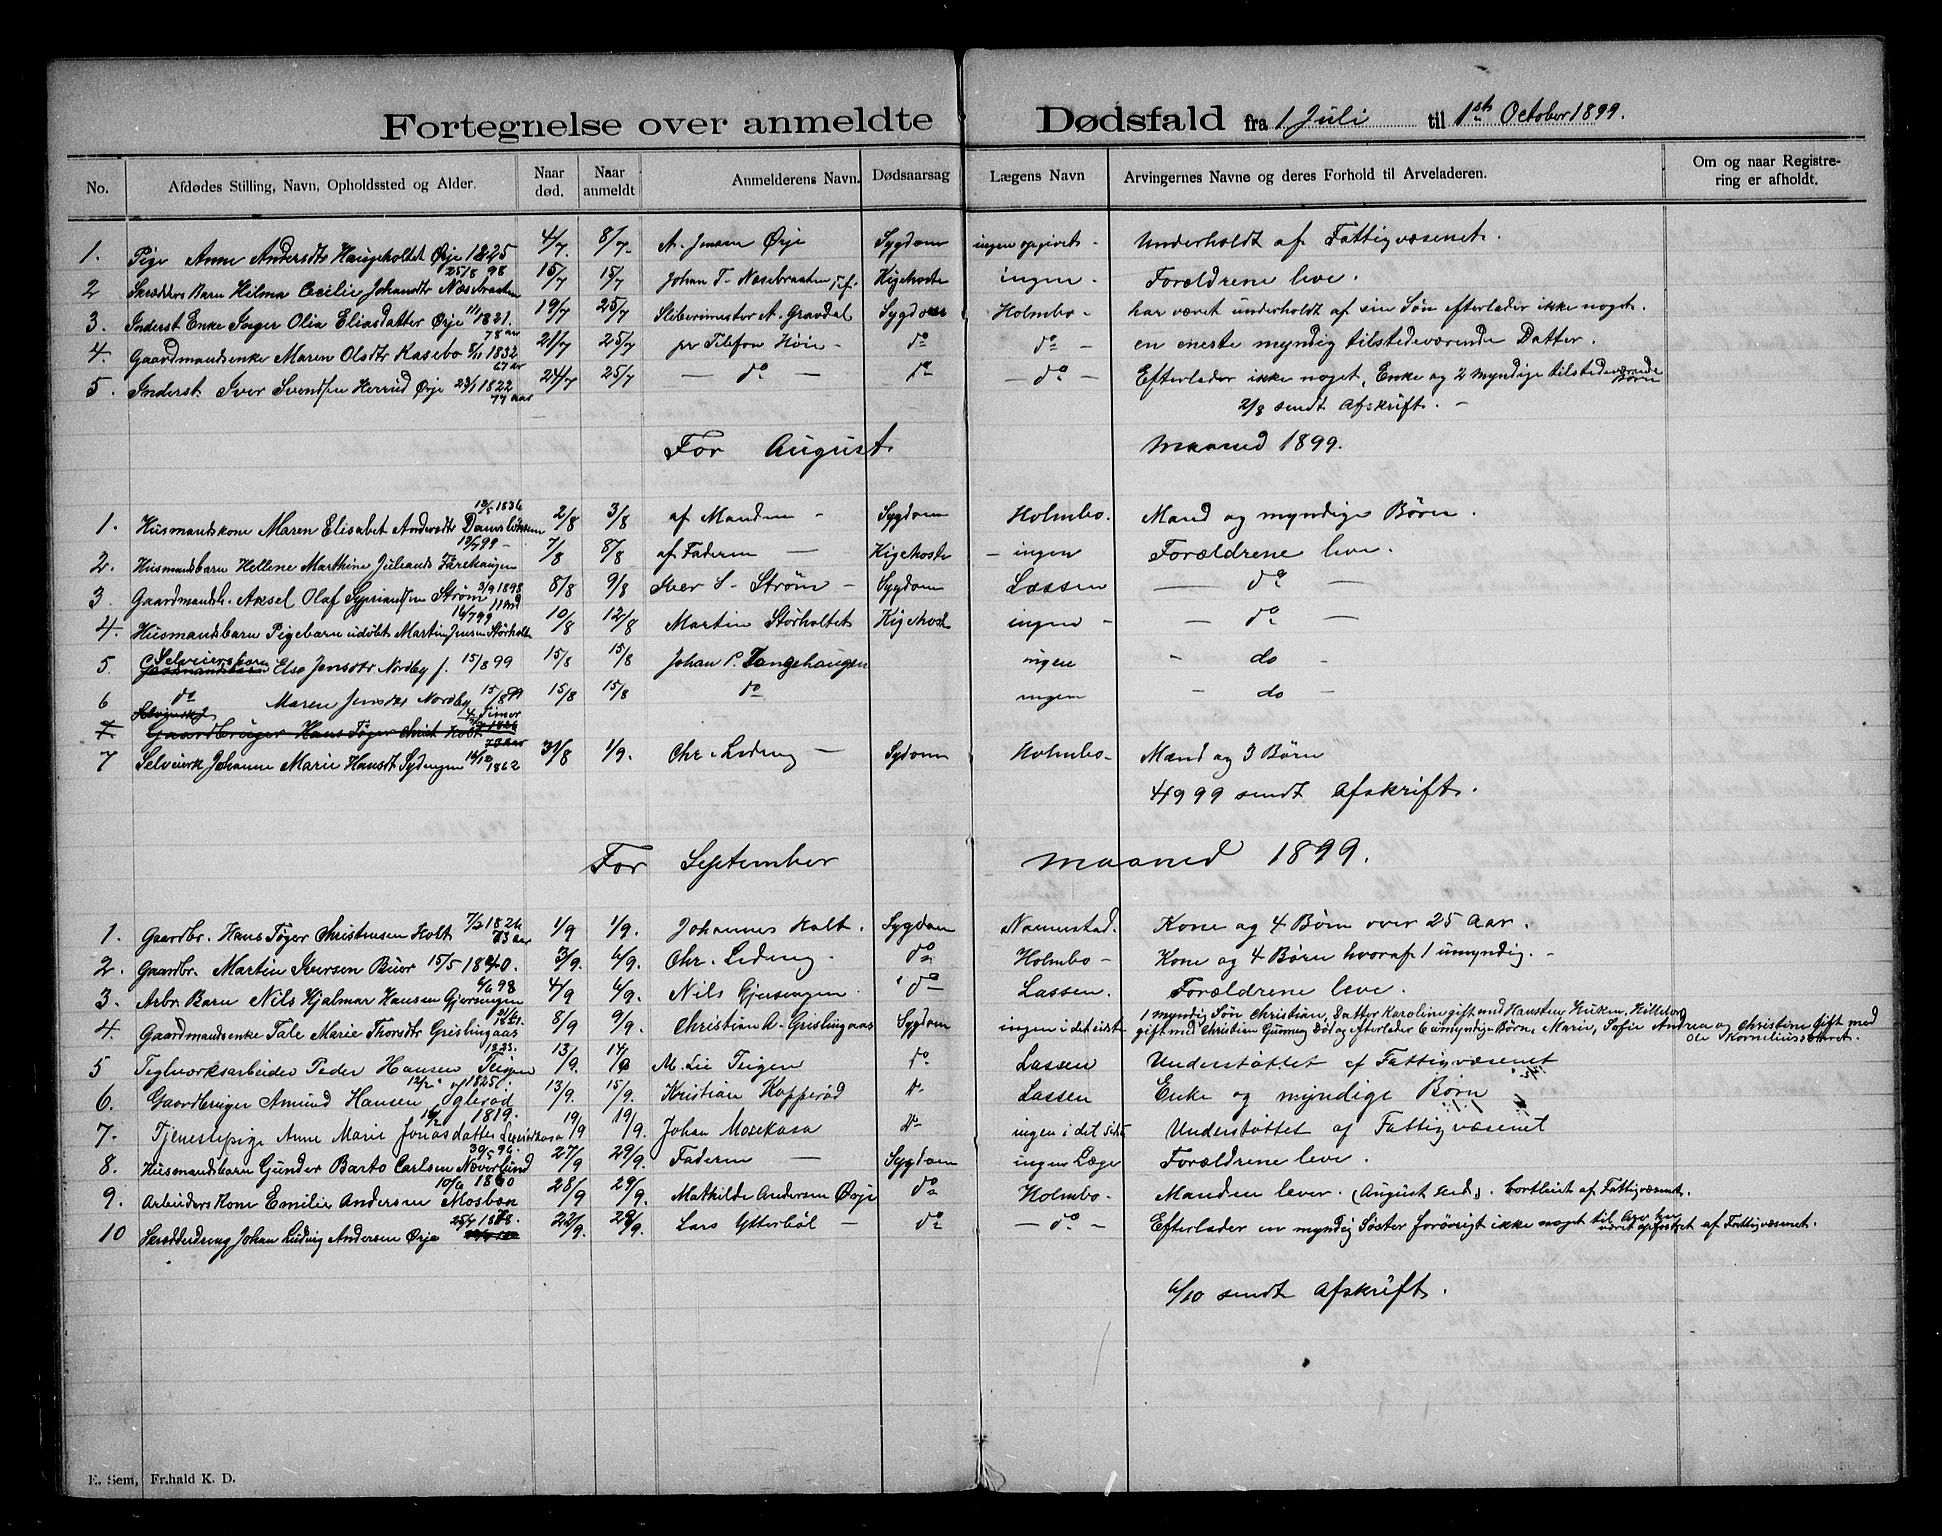 Fortegnelse over anmeldte Dødsfald fra 1 Juli til 1ste October 1899.
No. Afdødes Stilling, Navn, Opholdssted og Alder. Naar død. Naar anmeldt Anmelderens Navn. Dødsaarsag Lægens Navn Arvingernes Navne og deres Forhold til Arveladeren. Om og naar Registrering er afholdt.
1. Pige Anne Andersdtr Haugeholtet Ørje 1825 4/7. 8/7. A. Jensen Ørje Sygdom ingen opgivet - Underholdt af Fattigvæsenet.
2 Skrædders Barn Hilma Cecilie Johansdtr Næsebraaten 25/8 98 15/7 15/7 Johan T. Næsebraaten Kigehoste ingen - Forældrene leve.
3. Inderst Enke Inger Olia Eliasdatter Ørje 1821. 78 aar 19/7 25/7 Sliberimester A. Gravdal Sygdom Holmbo - har været underholdt af sin Søn efterlader ikke noget.
4. Gaardmandsenke Maren Olsdtr Kasebo 8/11 1832 67 aar 21/7 25/7 pr Telefon Høie - do - do - en eneste myndig tilstedeværende Datter.
5. Inderst. Iver Svendsen Herrud Ørje 23/1 1822 77 aar 24/7 25/7 - do - do - do - Efterlader ikke noget, Enke og 2 myndige tilstedeværende Børn
2/8 sendt Afskrift. -
For August maaned 1899.
1. Husmandskone Maren Elisabet Andersdtr 12/5 1836 2/8 3/8 af Manden - Sygdom Holmbo. Mand og myndige Børn.
2. Husmandsbarn Hellene Marthine Juliusds 7/8 8/8 af Faderen - Kigehoste - ingen Forældrene leve.
3. Gaardmandsb. Aksel Olaf Sypriansen Strøm 3/9 1898 11 md 8/8 9/8 Iver S. Strøm - Sygdom Lassen - do -
4. Husmandsbarn Pigebarn udøbt Martin Jensen Storholt 16/7 99 10/8 12/8 Martin Storholtet Kigehoste ingen - - do -
5 Selveiersbarn Else Jensdtr Nordby f. 15/8 99 15/8 15/8 Johan P. Tangehaugen ingen - do -
6 do Maren Jensdtr Nordby 15/8 99 15/8 15/8 do ingen - do -
4 Timer
7 Gaardbruger Hans Tøger Christ Holt
7 Selveierk Johanne Marie Hansdt Sydengen 14/12 1862 31/8 1/9. Chr. Lideng - Sygdom Holmbo - Mand og 3 Børn
4/9 99 sendt Afskrift.
For September maaned 1899.
1. Gaardbr. Hans Tøger Christensen Holt 7/2 1826 73 aar 1/9 1/9. Johannes Holt. Sygdom Navnestad. Kone og 4 Børn over 25 Aar.
2. Gaardbr. Martin Iversen Buor 15/5 1840. 3/9. 6/9. Chr. Lideng. do Holmbo - Kone og 4 Børn hvoraf 1 umyndig. -
3. Arbr. Barn Nils Hjalmar Hansen Gjersengen 98 4/9 6/9. Nils Gjersengen do Lassen. Forældrene leve.
4. Gaardmandsenke Tale Marie Thorsdtr Grislingaas 8/9 9/9. Christian A. Grislingaas Sygdom ingen i det sidste 1 myndig Søn Christian, Datter Karoline gift med Hansten Huken, Hilleborg
gift med Christian Gunneng Død og efterlader 6 umyndige Børn, Marie, Sofie Andrea og Christine gift med
Ole Korneliussen
5 Teglværksarbeider Peder Hansen Teigen 1823. 13/9. 14/9 M. Lie Teigen do Lassen Understøttet af Fattigvæsenet
6. Gaardbruger Amund Hansen Ysterød 12/2 1825. 13/9. 15/9. Kristian Kopperød do Lassen Enke og myndige Børn
7. Tjenestepige Anne Marie Jonasdatter 1819. 19/9 19/9. Johan Mosekasa do ingen i det sidste Understøttet af Fattigvæsenet
8. Husmandsbarn Gunder Barto Carlsen Næverlund 30/5 96. 27/9 29/9. Faderen - Sygdom ingen Læge Forældrene leve.
9. Arbeiders Kone Emilie Andersen Mosbæk 1860 28/9 29/9. Mathilde Andersen Ørje do Holmbo - Manden lever. (August ) . bortleiet af Fattigvæsenet.
10 Skrædderdreng Johan Ludvig Andersen Ørje 25/7 22/9. 29/9. Lars Ytterbøl - do - do - Efterlader en myndig Søster forøvrigt ikke noget til Arv har været opfostret af Fattigvæsenet.
6/10 sendt Afskrift.
E. Sem, Fr.hald K. D.